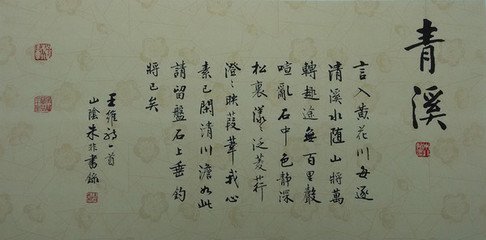 青溪
言入黄花川每逐
清溪水随山將萬
轉趣途無百里聲
喧亂石中色靜深
松裏漾〻泛菱荇
澄〻映葭葦我心
素已閑清川澹如此
請留盤石上垂釣
將已矣
王維詩一首
山陰朱非書錄